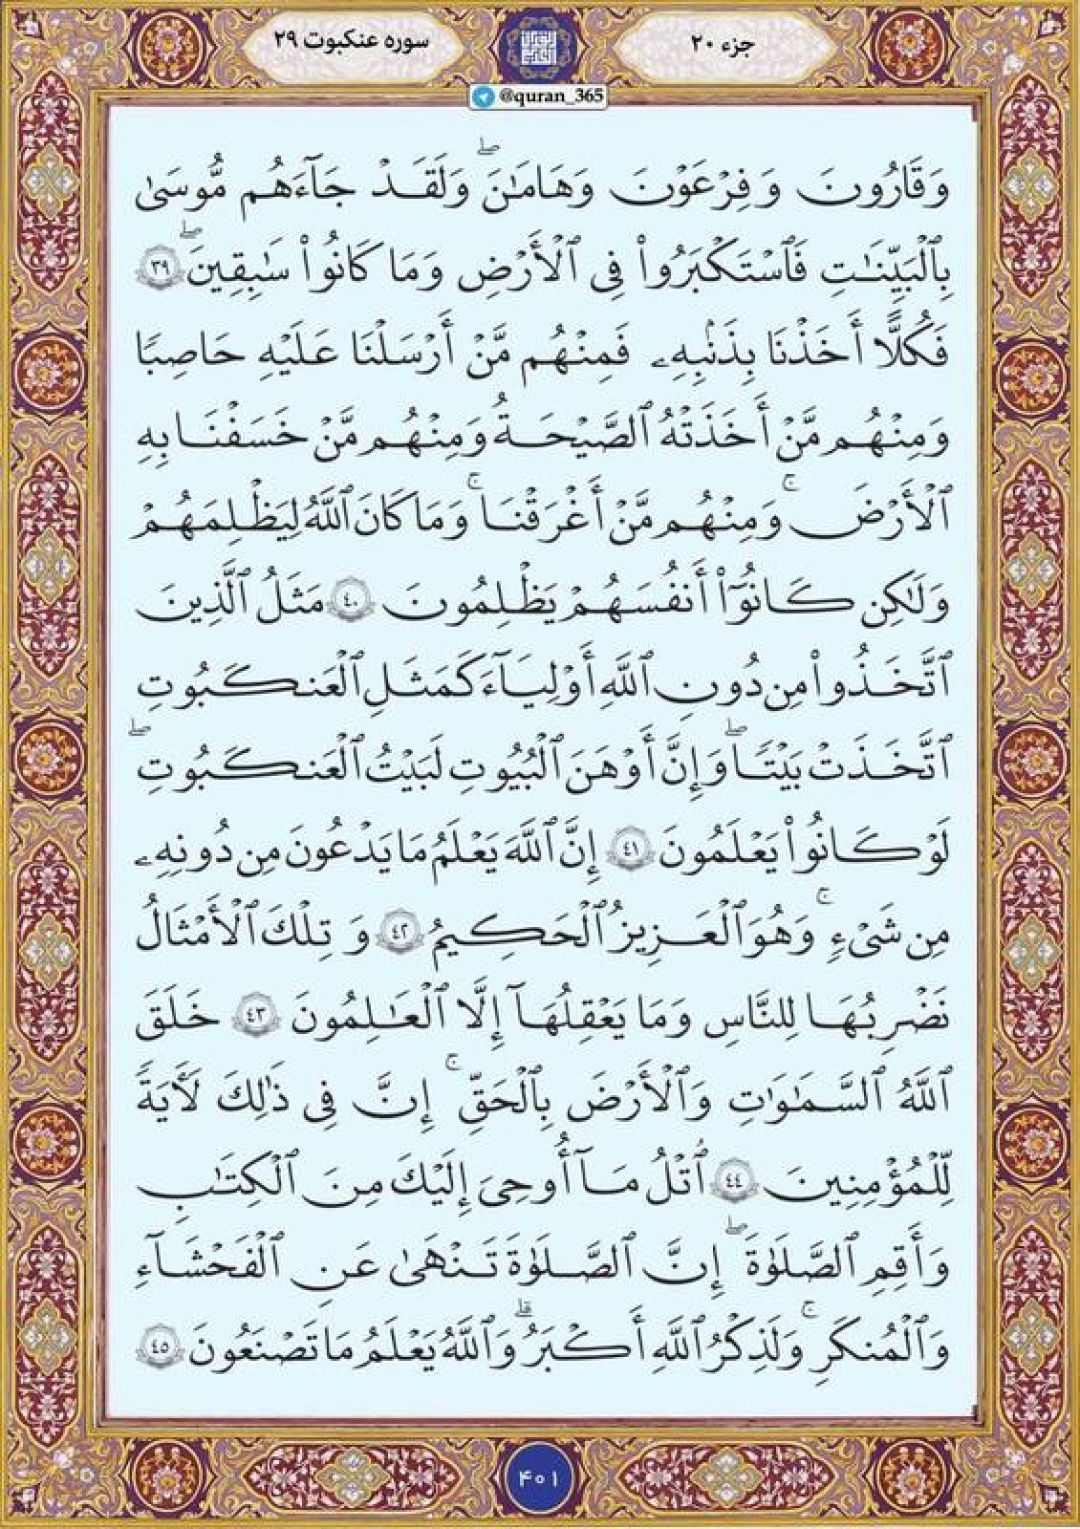 جزء ۲۰
سوره عنکبوت ۲۹
@quran_365
وَقَارُونَ وَفِرْعَوْنَ وَهَامَٰنَۖ وَلَقَدْ جَآءَهُم مُّوسَىٰ
بِٱلْبَيِّنَٰتِ فَٱسْتَكْبَرُوا۟ فِى ٱلْأَرْضِ وَمَا كَانُوا۟ سَٰبِقِينَۖ ٣٩
فَكُلًّا أَخَذْنَا بِذَنۢبِهِۦ فَمِنْهُم مَّنْ أَرْسَلْنَا عَلَيْهِ حَاصِبًا
وَمِنْهُم مَّنْ أَخَذَتْهُ ٱلصَّيْحَةُ وَمِنْهُم مَّنْ خَسَفْنَا بِهِ
ٱلْأَرْضَۚ وَمِنْهُم مَّنْ أَغْرَقْنَاۚ وَمَا كَانَ ٱللَّهُ لِيَظْلِمَهُمْ
وَلَٰكِن كَانُوٓا۟ أَنفُسَهُمْ يَظْلِمُونَ ٤٠ مَثَلُ ٱلَّذِينَ
ٱتَّخَذُوا۟ مِن دُونِ ٱللَّهِ أَوْلِيَآءَ كَمَثَلِ ٱلْعَنكَبُوتِ
ٱتَّخَذَتْ بَيْتًاۖ وَإِنَّ أَوْهَنَ ٱلْبُيُوتِ لَبَيْتُ ٱلْعَنكَبُوتِۖ
لَوْ كَانُوا۟ يَعْلَمُونَ ٤١ إِنَّ ٱللَّهَ يَعْلَمُ مَا يَدْعُونَ مِن دُونِهِۦ
مِن شَىْءٍۚ وَهُوَ ٱلْعَزِيزُ ٱلْحَكِيمُ ٤٢ وَتِلْكَ ٱلْأَمْثَالُ
نَضْرِبُهَا لِلنَّاسِ وَمَا يَعْقِلُهَآ إِلَّا ٱلْعَٰلِمُونَ ٤٣ خَلَقَ
ٱللَّهُ ٱلسَّمَٰوَٰتِ وَٱلْأَرْضَ بِٱلْحَقِّۚ إِنَّ فِى ذَٰلِكَ لَءَايَةً
لِّلْمُؤْمِنِينَ ٤٤ ٱتْلُ مَآ أُوحِىَ إِلَيْكَ مِنَ ٱلْكِتَٰبِ
وَأَقِمِ ٱلصَّلَوٰةَۖ إِنَّ ٱلصَّلَوٰةَ تَنْهَىٰ عَنِ ٱلْفَحْشَآءِ
وَٱلْمُنكَرِۚ وَلَذِكْرُ ٱللَّهِ أَكْبَرُۗ وَٱللَّهُ يَعْلَمُ مَا تَصْنَعُونَ ٤٥
۴۰۱